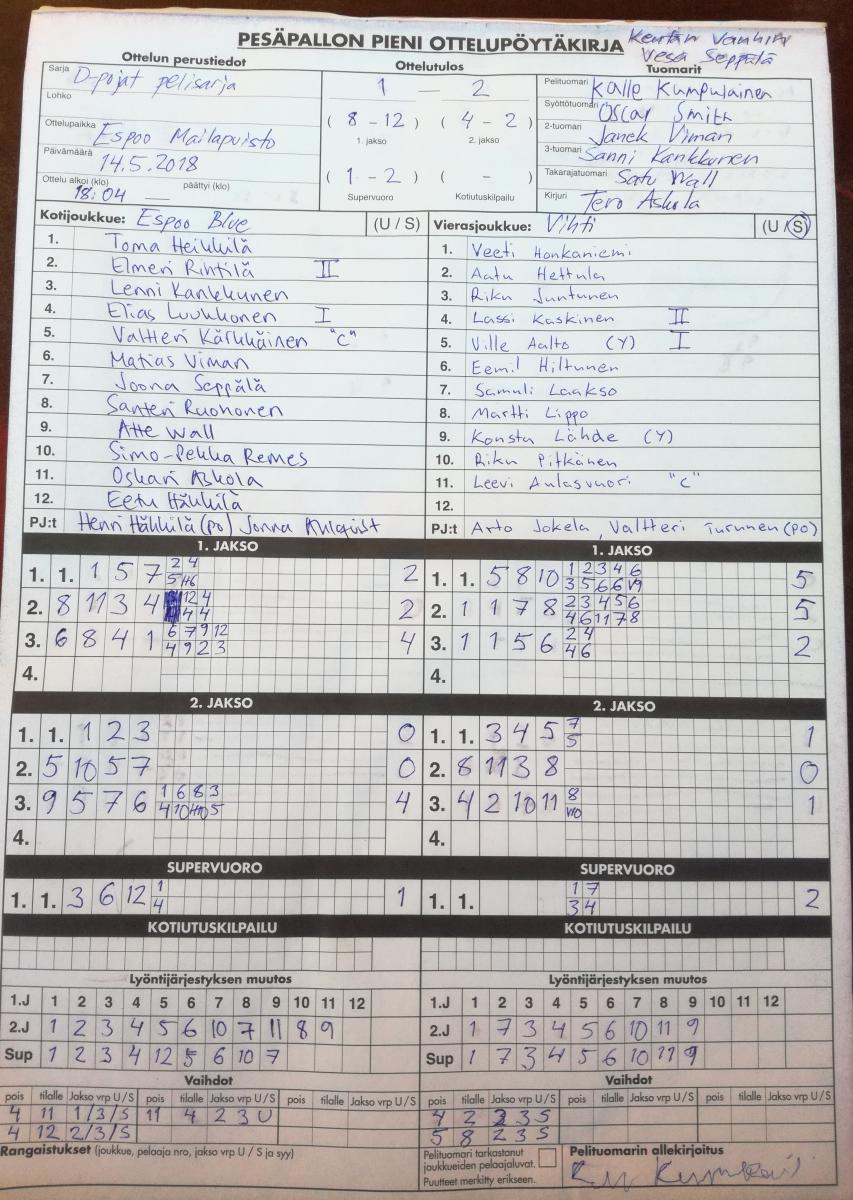 PESÄPALLON PIENI OTTELUPÖYTÄKIRJA Kentän Vanhin
Vesa Seppälä
Ottelun perustiedot Ottelutulos Tuomarit
Sarja D-pojat pelisarja
Lohko
Ottelupaikka Espoo Mailapuisto
Päivämäärä 14.5.2018
Ottelu alkoi (klo) päättyi (klo)
18:04 —
1 — 2
( 8 - 12 ) ( 4 - 2 )
1. jakso 2. jakso
( 1 - 2 ) ( - )
Supervuoro Kotiutuskilpailu
Pelituomari Kalle Kumpulainen
Syöttötuomari Oscar Smith
2-tuomari Janek Viman
3-tuomari Sanni Kankkunen
Takarajatuomari Satu Wall
Kirjuri Tero Askola
Kotijoukkue: Espoo Blue (U / S)
1. Toma Heikkilä
2. Elmeri Rintilä II
3. Lenni Kankkunen
4. Elias Luukkonen I
5. Valtteri Kärkkäinen "C"
6. Matias Viman
7. Joona Seppälä
8. Santeri Ruohonen
9. Atte Wall
10. Simo-Pekka Remes
11. Oskari Askola
12. Eetu Häkkilä
PJ:t Henri Häkkilä (po) Jonna Ahlqvist
Vierasjoukkue: Vihti (U / S)
1. Veeti Honkaniemi
2. Aatu Hettula
3. Riku Juntunen
4. Lassi Kaskinen II
5. Ville Aalto (Y) I
6. Eemil Hiltunen
7. Samuli Laakso
8. Martti Lippo
9. Konsta Lähde (Y)
10. Riku Pitkänen
11. Leevi Aulasvuori "C"
12.
PJ:t Arto Jokela, Valtteri Turunen (PO)
1. JAKSO
1. 1. 1 5 7 2 4 2
2. 8 11 3 4 12 4 2
4 4
3. 6 8 4 1 6 7 9 12 4
4 9 2 3
4.
1. JAKSO
1. 1. 5 8 10 1 2 3 4 6 5
3 5 6 6
2. 1 1 7 8 2 3 4 5 6 5
4 6 11 7 8
3. 1 1 5 6 2 4 2
4 6
4.
2. JAKSO
1. 1. 1 2 3 0
2. 5 10 5 7 0
3. 9 5 7 6 1 6 8 3 4
4 10 5
4.
2. JAKSO
1. 1. 3 4 5 7 1
5
2. 8 11 3 8 0
3. 4 2 10 11 8 1
4.
SUPERVUORO
1. 1. 3 6 12 1 1
4
SUPERVUORO
1. 1. 1 7 2
3 4
KOTIUTUSKILPAILU
KOTIUTUSKILPAILU
Lyöntijärjestyksen muutos
1.J 1 2 3 4 5 6 7 8 9 10 11 12
2.J 1 2 3 4 5 6 10 7 11 8 9
Sup 1 2 3 4 12 5 6 10 7
Lyöntijärjestyksen muutos
1.J 1 2 3 4 5 6 7 8 9 10 11 12
2.J 1 7 3 4 5 6 10 11 9
Sup 1 7 3 4 5 6 10 11 9
Vaihdot
pois tilalle Jakso vrp U/S pois tilalle Jakso vrp U/S pois tilalle Jakso vrp U/S
4 11 1/3/S 11 4 2 3 U
4 12 2/3/S
Vaihdot
pois tilalle Jakso vrp U/S pois tilalle Jakso vrp U/S pois tilalle Jakso vrp U/S
4 2 2 3 S
5 8 2 3 S
Rangaistukset (joukkue, pelaaja nro, jakso vrp U / S ja syy)
Pelituomari tarkastanut
joukkueiden pelaajaluvat.
Puutteet merkitty erikseen.
Pelituomarin allekirjoitus